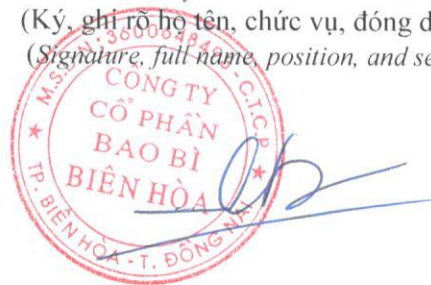 (Ký, ghi rõ họ tên, chức vụ, đóng d
(Signature, full name, position, and se
C.T.C.P
CÔNG TY
CỔ PHẦN
BAO BÌ
BIÊN HÒA
TP. BIÊN HÒA - T. ĐỒNG NAI